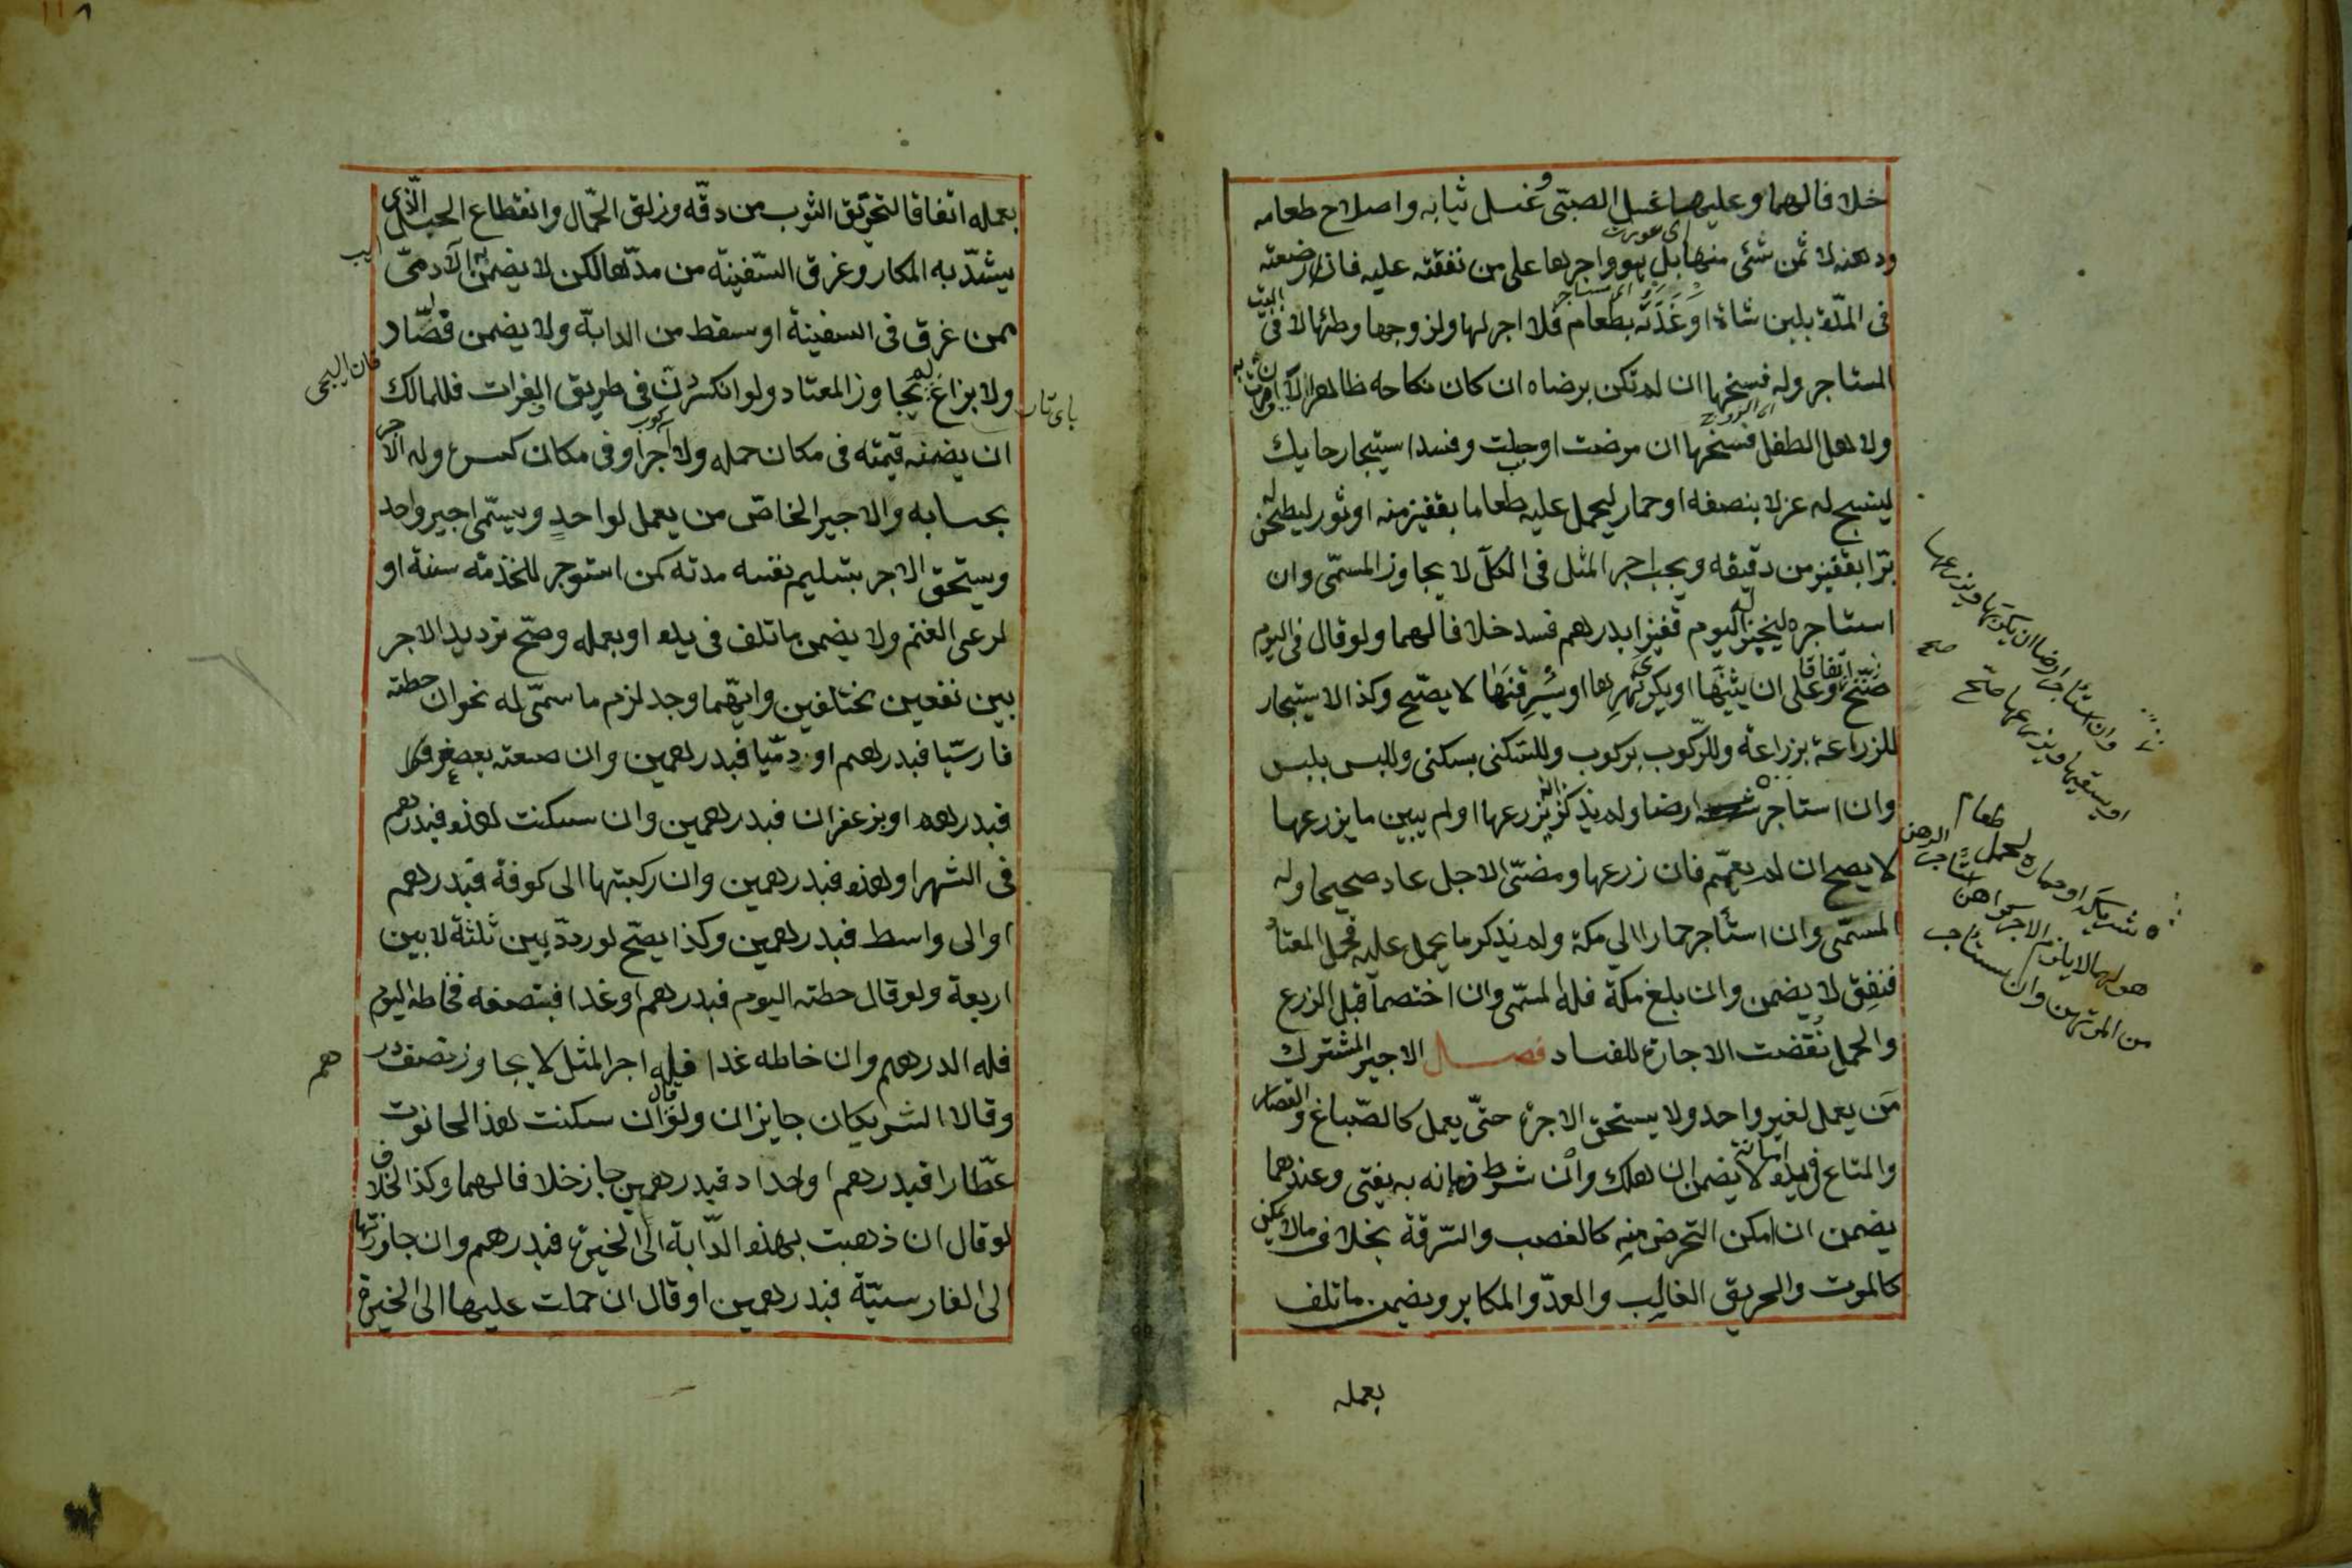 خلافا لهما وعليها غسل الصبى وغسل ثيابه واصلاح طعامه
ودهنه لا ثمن شئ منها بل هو واجرها على من نفقته عليه فان ارضعته
فى المدّة بلبن شاة او غَذَتْه بطعام فلا اجر لها ولزوجها وطئها لا فى بيت
المستاجر وله فسخها ان لم تكن برضاه ان كان نكاحه ظاهرا
ولاهل الطفل فسخها ان مرضت او حبلت وفسد استيجار حايك
لينسج له غزلا بنصفه او حمار ليحمل عليه طعاما بقفيز منه او ثور ليطحن له
برّا بقفيز من دقيقه ويجب اجر المثل فى الكلّ لا يجاوز المسمّى وان
استاجره ليخبز له اليوم قفيزا بدرهم فسد خلافا لهما ولو قال فى اليوم
صَحّ اتفاقا وعلى ان يثنيَها او يكرى نهرها او يُسَرقِنَها لا يصّح وكذا الاستيجار
للزراعة بزراعة وللرّكوب بركوب وللسّكنى بسكنى وللبس بلبس
وان استاجر ارضا ولم يذكر انه يزرعها او لم يبين ما يزرعها
لا يصح ان لم يعمّم فان زرعها ومضىّ الاجل عاد صحيحا وله
المسمّى وان استأجر حمارا الى مكة ولم يذكر ما يحمل عليه فحمل المعتاد
فنفق لا يضمن وان بلغ مكّة فله المسمّى وان اختصما قبل الزرع
والحمل نُقضت الاجارة للفساد فصل الاجير المشترك
مَن يعمل لغير واحد ولا يستحق الاجرة حتىّ يعمل كالصّباغ والقصار
والمتاع فى يده امانة لا يضمن ان هلك وان شرط ضمانه به يفتى وعندهما
يضمن ان امكن التحرض منه كالغصب والسّرقة بخلاف ما لا يمكن
كالموت والحريق الغالِب والعدّو المكابر ويضمن ما تلف
يعمله
وان استأجر ارضا ان يكربها ويزرعها
او يسقيها ويزرعها صّح
صح
بعمله اتفاقا لتخرّيق الثوب من دقّه وزلق الحمّال وانقطاع الحبل الّذى
يشدّ به المكار وغرق السّفينة من مدّها لكن لا يضمن به الآدمىّ
ممن غرق فى السفينة او سقط من الدابّة ولا يضمن قصّاد
ولا بزاغ لم يتجاوز المعتاد ولو انكسر دَنّ فى طريق الفرات فللمالك
ان يضمنه قيمته فى مكان حمله ولا آجر او فى مكان كسره وله الاجر
بحسابه والاجير الخاصّ من يعمل لواحدٍ ويسمّى اجير واحد
ويستحق الاجر بتسليم نفسه مدته كمن استوجر للخذمة سنة او
لرعى الغنم ولا يضمن ما تلف فى يده او بعمله وصّح ترديد الاجر
بين نفعين مختلفين وايّهما وجد لزم ما سمّى له نحو ان خطته
فارسيّا فبدرهم او رومّيا فبدرهمين وان صبغته بعصفر
فبدرهم او بزعفران فبدرهمين وان سكنت هذه فبدرهم
فى الشهر او هذه فبدرهمين وان ركبتها الى كوفة فبدرهم
او الى واسط فبدرهمين وكذا يصّح لو ردّد بين ثلثة لا بين
اربعة ولو قال خطته اليوم فبدرهم او غدا فبنصفه فخاطه اليوم
فله الدرهم وان خاطه غدا فله اجر المثل لا يجاوز نصف درهم
وقالا الشريكان جايزان ولو قال ان سكنت هذا الحانوت
عطّارا فبدرهم او حدادا فبدرهمين جاز خلافا لهما وكذا الخلاف
لو قال ان ذهبت بهذه الدّابة الى الحيرة فبدرهم وان جاوزتها
الى القارسيّة فبدرهمين او قال ان حملت عليها الى الحيرة